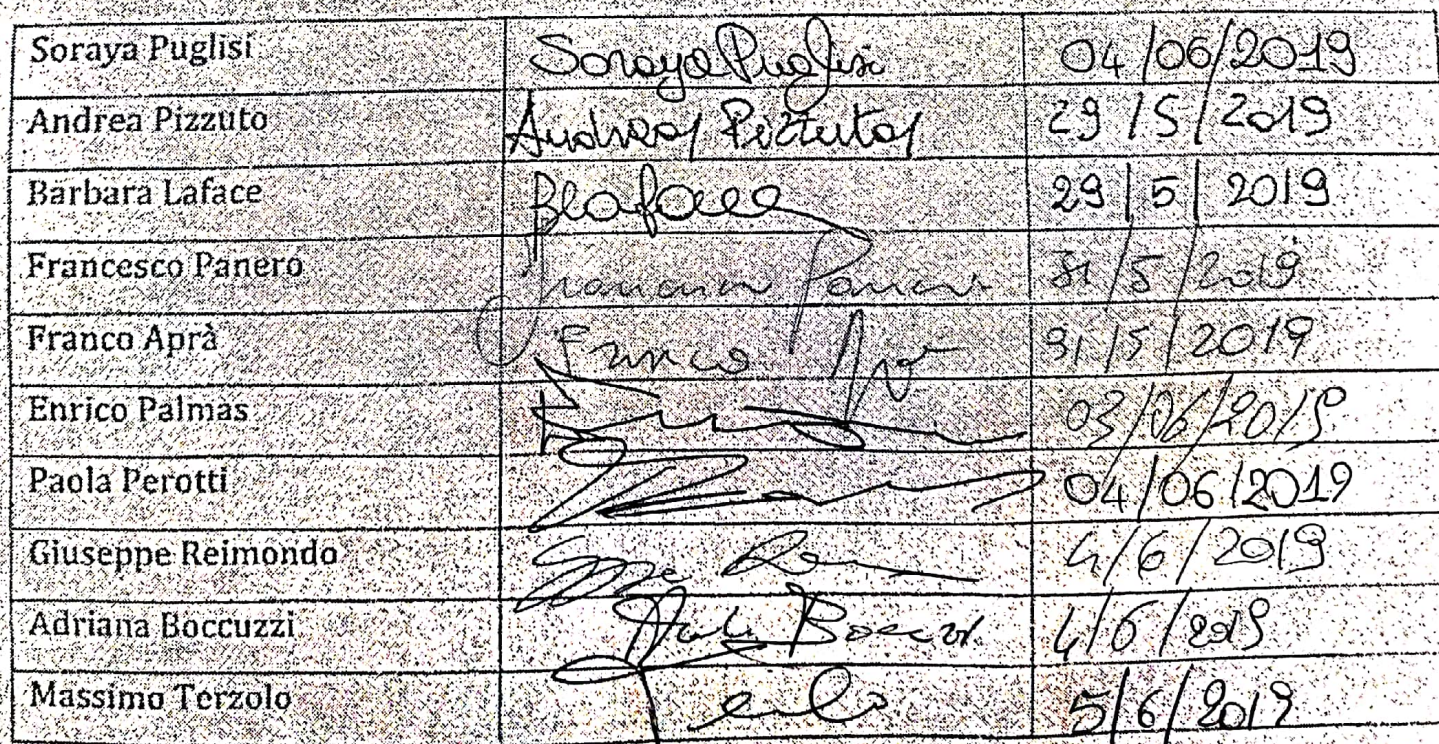 Soraya Puglisi Soraya Puglisi 04/06/2019
Andrea Pizzuto Andrea Pizzuto 29/5/2019
Barbara Laface BLaface 29/5/2019
Francesco Panero Francesco Panero 31/5/2019
Franco Aprà Franco Aprà 31/5/2019
Enrico Palmas 03/06/2019
Paola Perotti 04/06/2019
Giuseppe Reimondo 4/6/2019
Adriana Boccuzzi 4/6/2019
Massimo Terzolo 5/6/2019